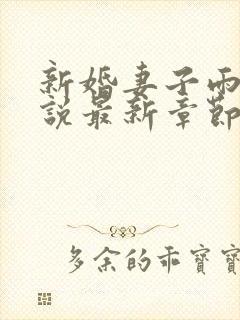 新婚妻子雨
說最新章節
多余的乖寶寶